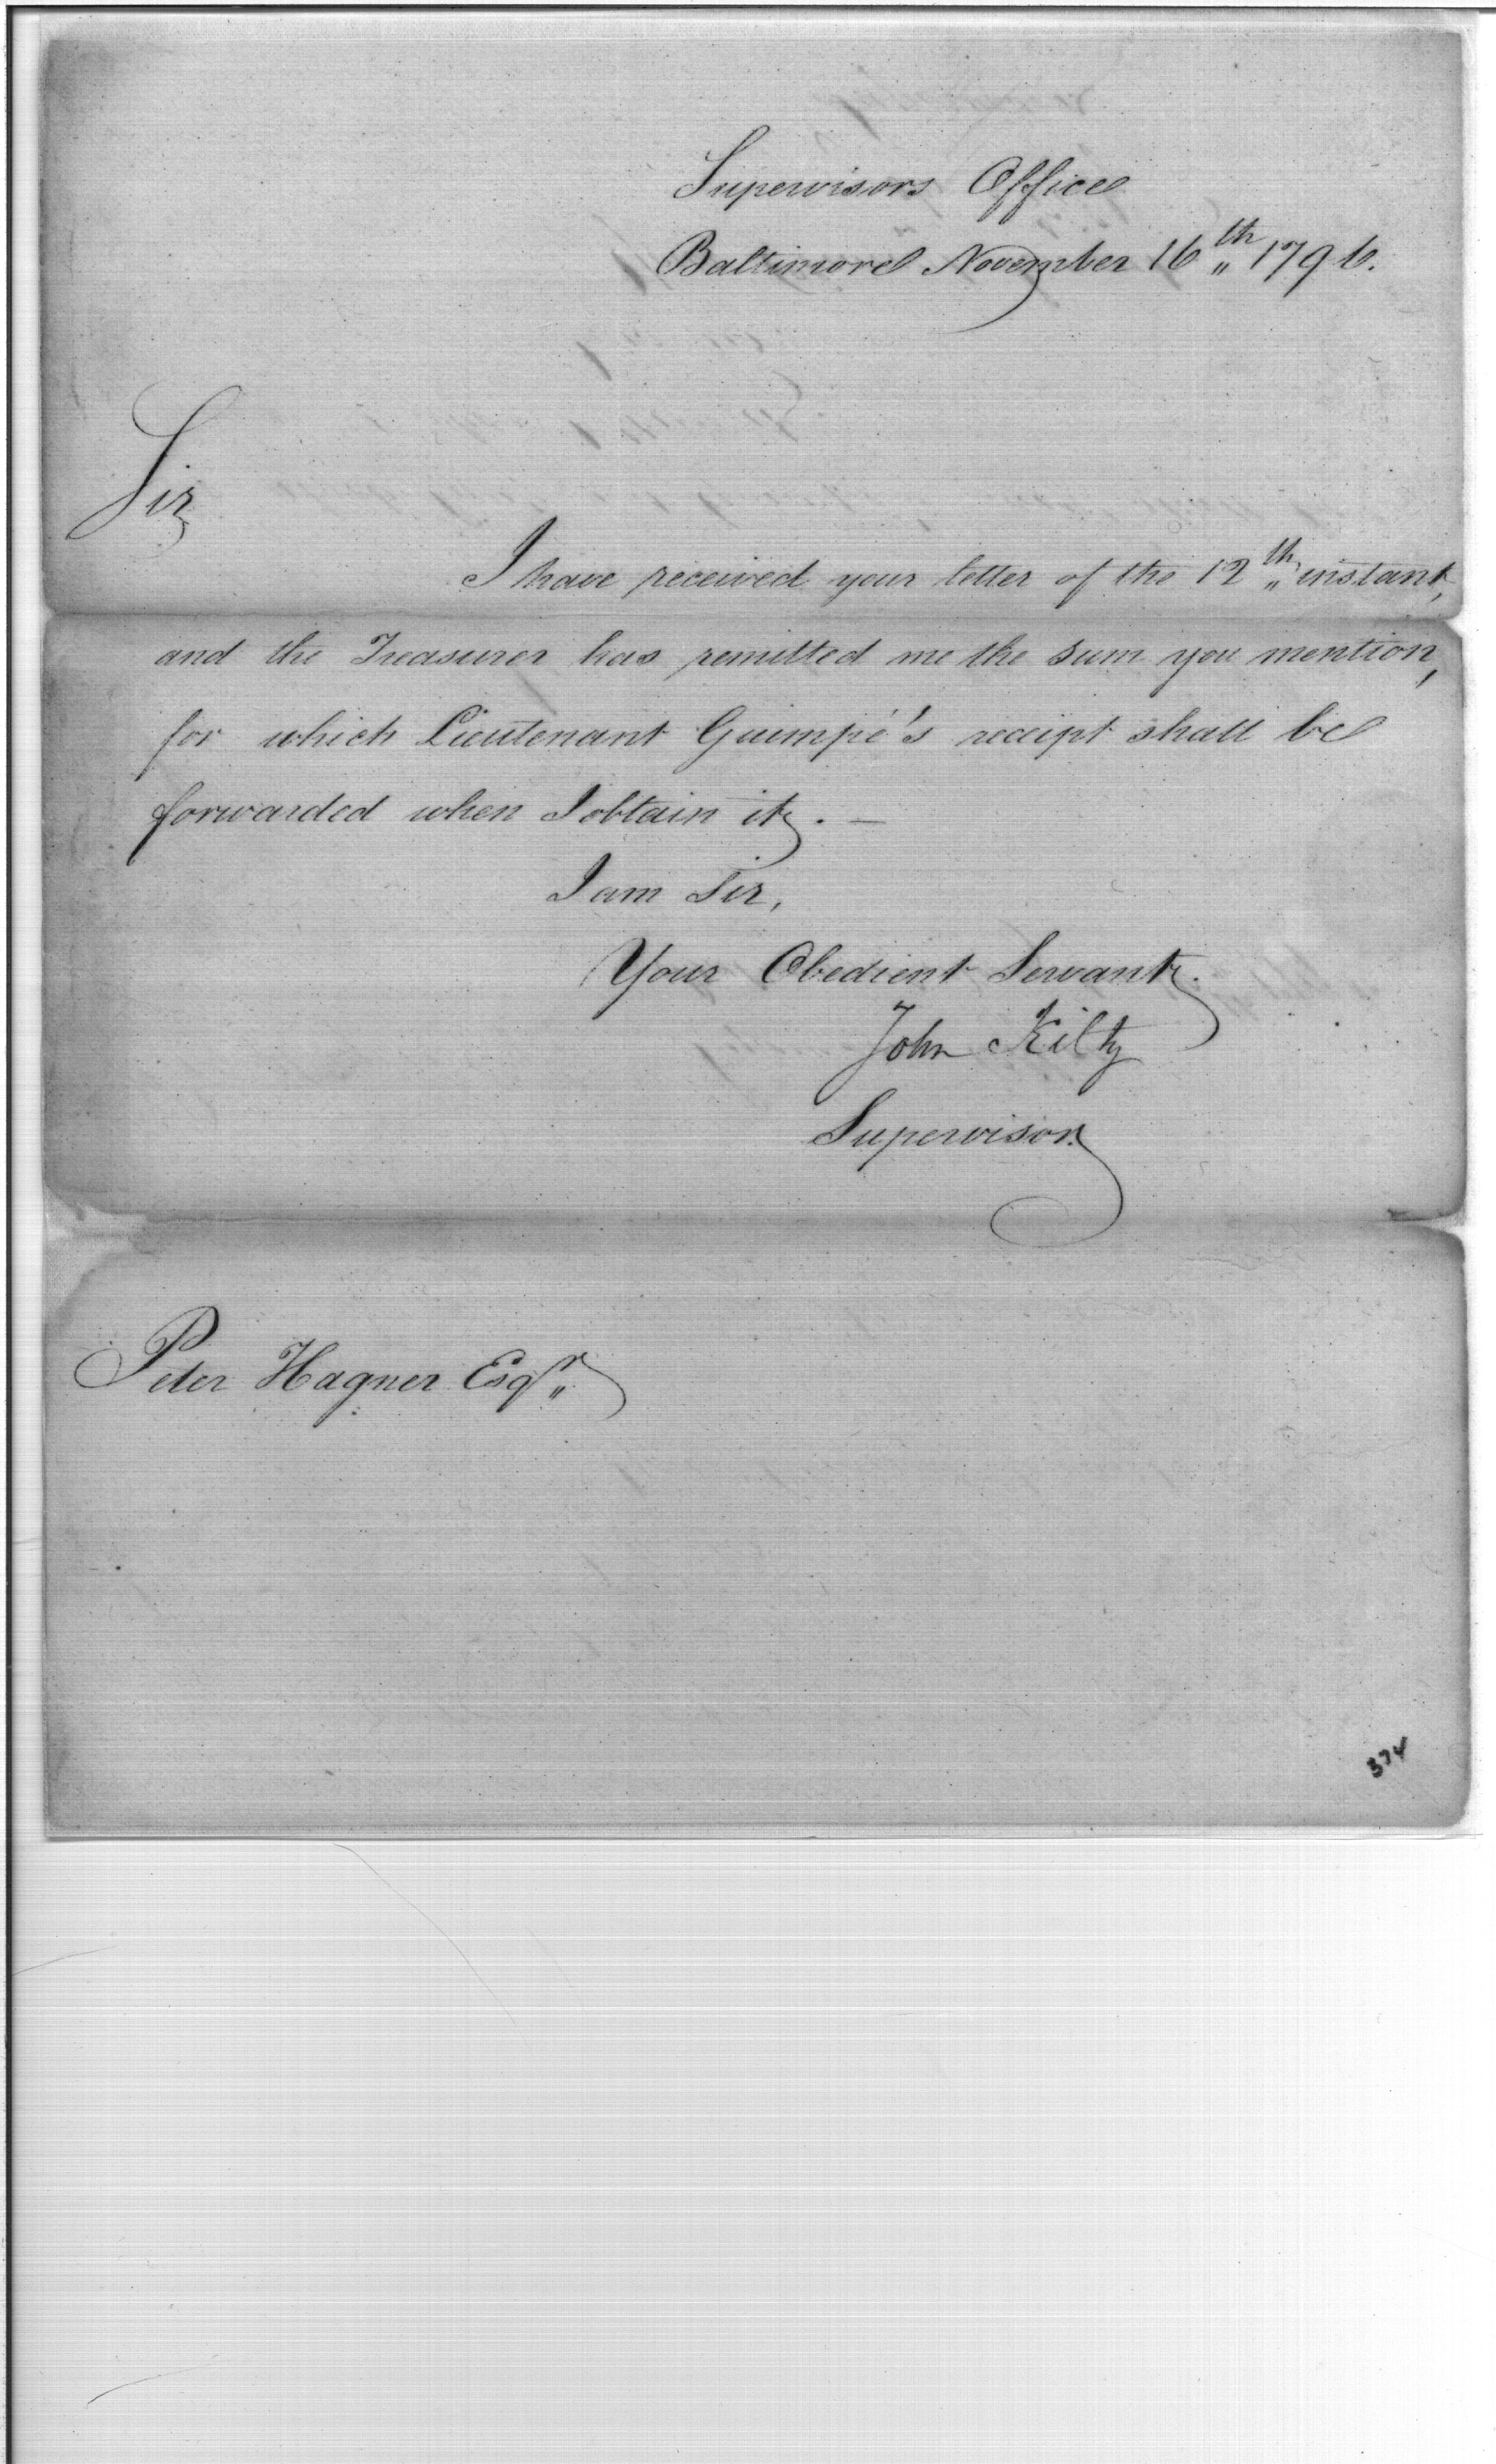 Supervisors Office
Baltimore November 16th 1796.
Sir
I have received your letter of the 12th instant,
and the Treasurer has remitted me the sum you mention,
for which Lieutenant Guimpé's receipt shall be
forwarded when I obtain it. —
I am Sir,
Your Obedient Servant.
John Kilty
Supervisor
Peter Hagner Esqr
374